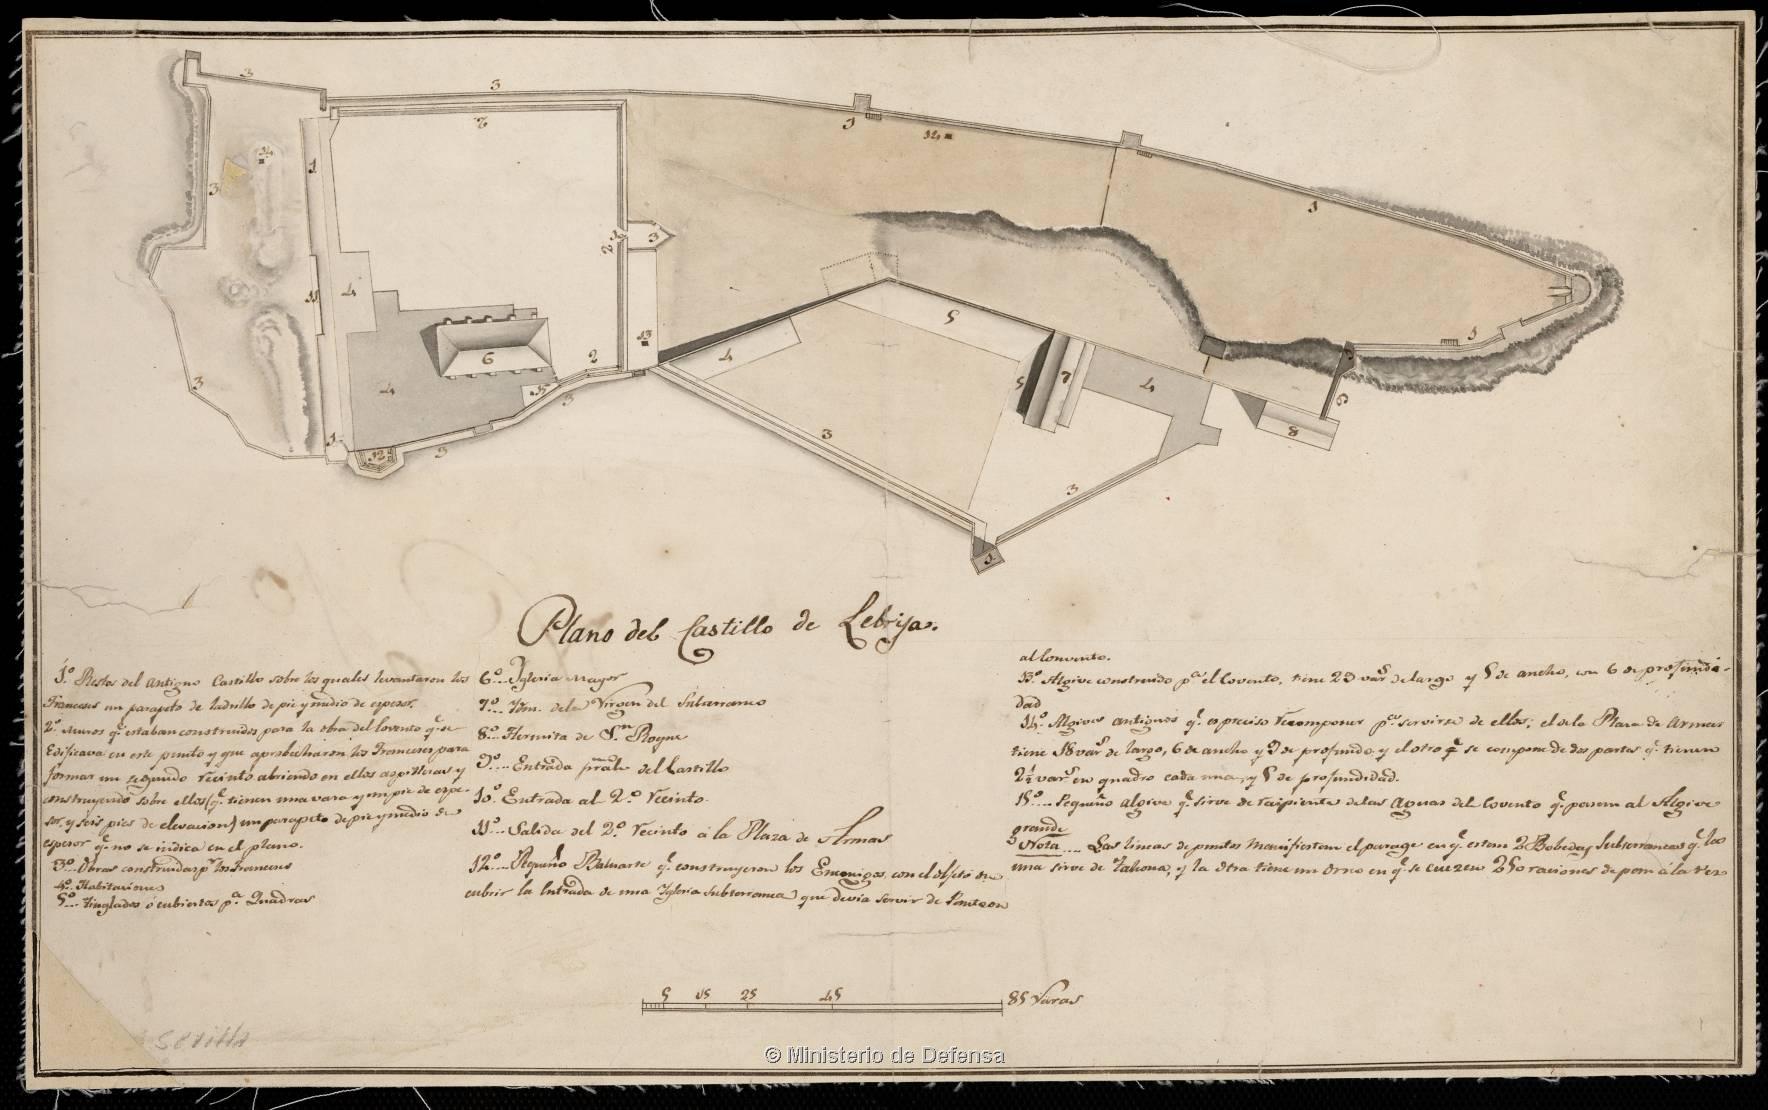 Plano del Castillo de Lebrija.
1.º Restos del antiguo Castillo sobre los quales levantaron los
Franceses un parapeto de ladrillo de pie y medio de espesor.
2.º Muros q.e estaban construidos para la obra del Covento q.e se
Edificava en este punto y que aprobecharon los Franceses para
formar un segundo recinto abriendo en ellos aspilleras y
construyendo sobre ellos (q.e tienen una vara y un pie de espe-
sor, y seis pies de elevacion) un parapeto de pie y medio de
espesor q.e no se indica en el plano.
3.º Obras construidas p.r los Franceses
4.º Habitaciones
5.º... Tinglados ó cubiertos p.a Quadras
6.º Yglesia Mayor
7.º... Ydm. de la Virgen del
8.º Hermita de S.n Roque
9.º... Entrada pral. del Castillo
10.º Entrada al 2.º recinto.
11.º... Salida del 2.º recinto á la Plaza de Armas
12.º... Pequeño Baluarte q.e construyeron los Enemigos, con el objeto de
cubrir la Entrada de una Yglesia Subterranea que devia servir de Panteon
al Convento.
13.º Algive construido p.a el Covento, tiene 23 var.s de largo y 5 de ancho, con 6 de profundi-
dad
14.º Algives antiguos q.e es preciso recomponer p.a servirse de ellos; el de la Plaza de Armas
tiene 18 var.s de largo, 6 de ancho y 9 de profundo, y el otro q.e se compone de dos partes q.e tienen
2 1/2 var.s en quadro cada una, y 5 de profundidad.
15.º... Pequeño algive q.e sirve de recipiente de las aguas del Covento q.e pasan al Algive
grande
Nota.... Las lineas de puntos manifiestan el parage en q.e estan 2 Bobedas Subterraneas q.e la
una sirve de Tahona, y la otra tiene un orno en q.e se cuezen 250 raciones de pan á la vez
5 15 25 45 85 Varas
Sevilla
© Ministerio de Defensa